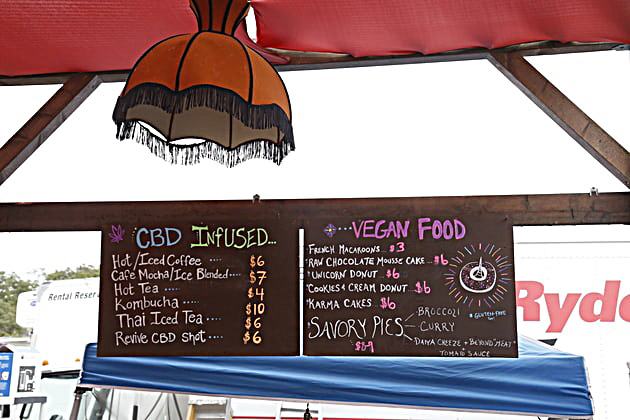 CBD INFUSED...
Hot/Iced Coffee .... $6
Cafe Mocha/Ice Blended.... $7
Hot Tea .... $4
Kombucha .... $10
Thai Iced Tea .... $6
Revive CBD Shot .... $6
...VEGAN FOOD
French Macaroons... $3
*Raw Chocolate Mousse Cake... $6
*Unicorn Donut .. $6
*Cookies & Cream Donut .. $6
*Karma Cakes .. $6
* Gluten-Free
Savory Pies
Broccoli
Curry
Daiya Cheeze + Beyond "Meat"
Tomato Sauce
Rental Reser
Ryde